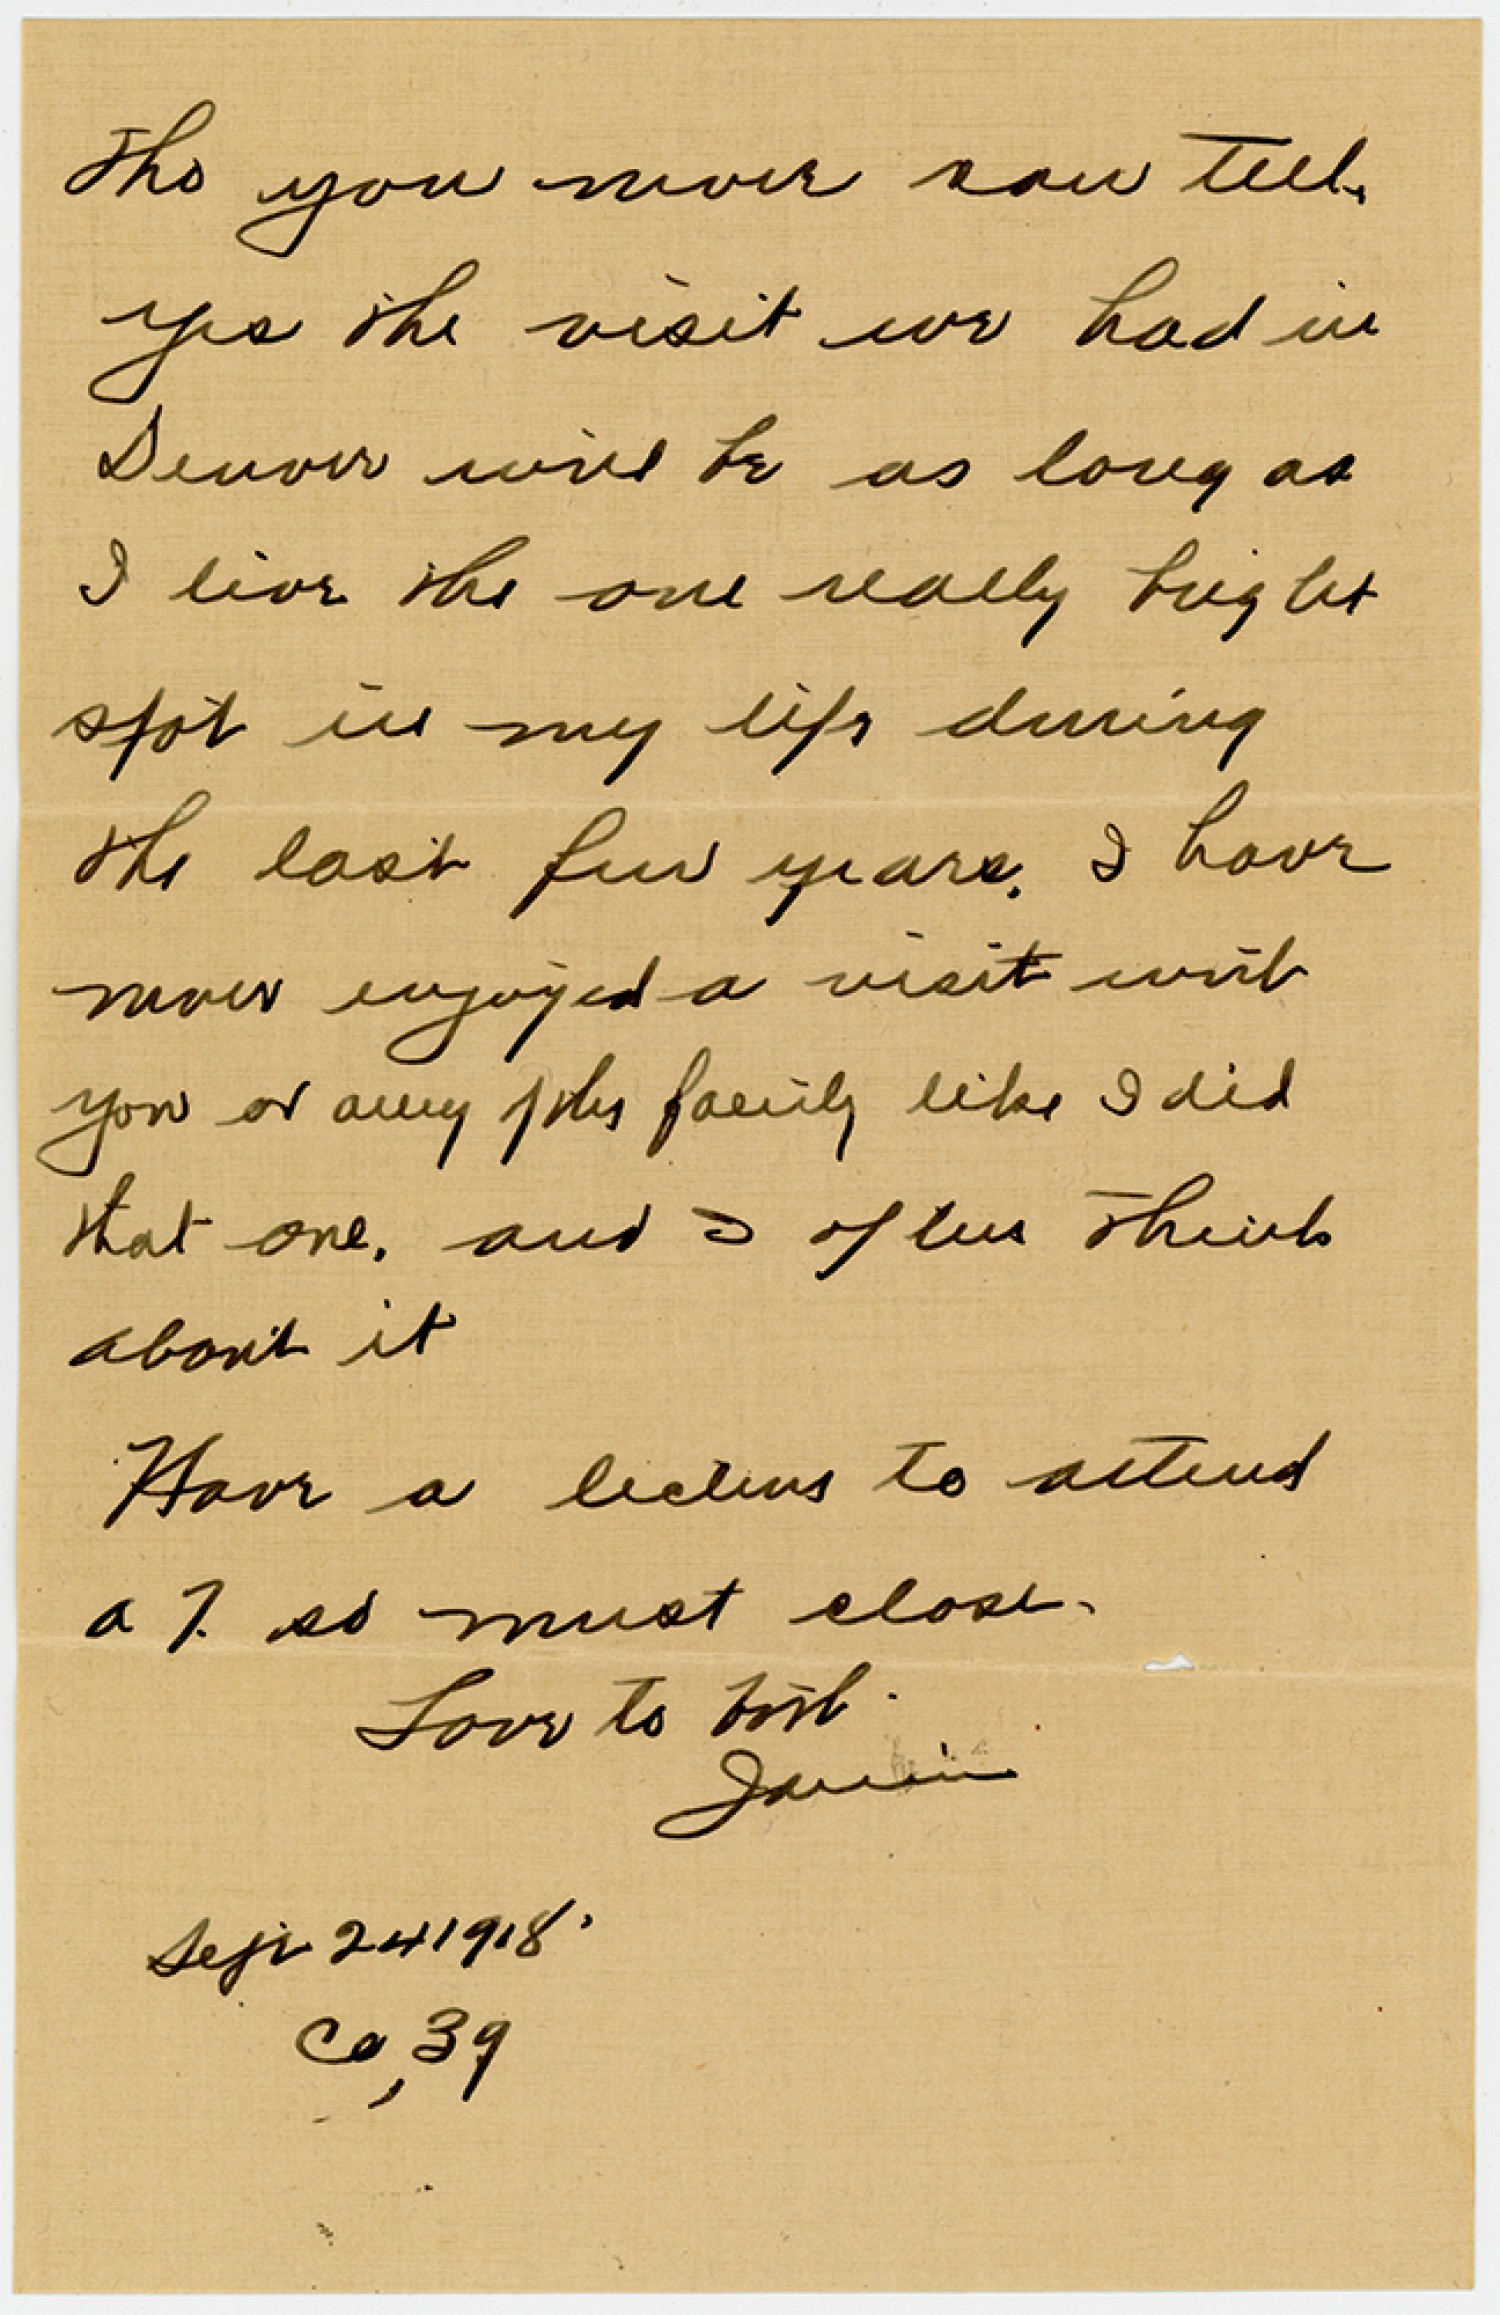 tho you never can tell.
Yes the visit we had in
Denver will be as long as
I live the one really bright
spot in my life during
the last few years. I have
never enjoyed a visit with
you or any of the family like I did
that one. and I often think
about it
Have a lecture to attend
a 7. so must close.
Love to both.
Sept 24 1918.
Co, 39